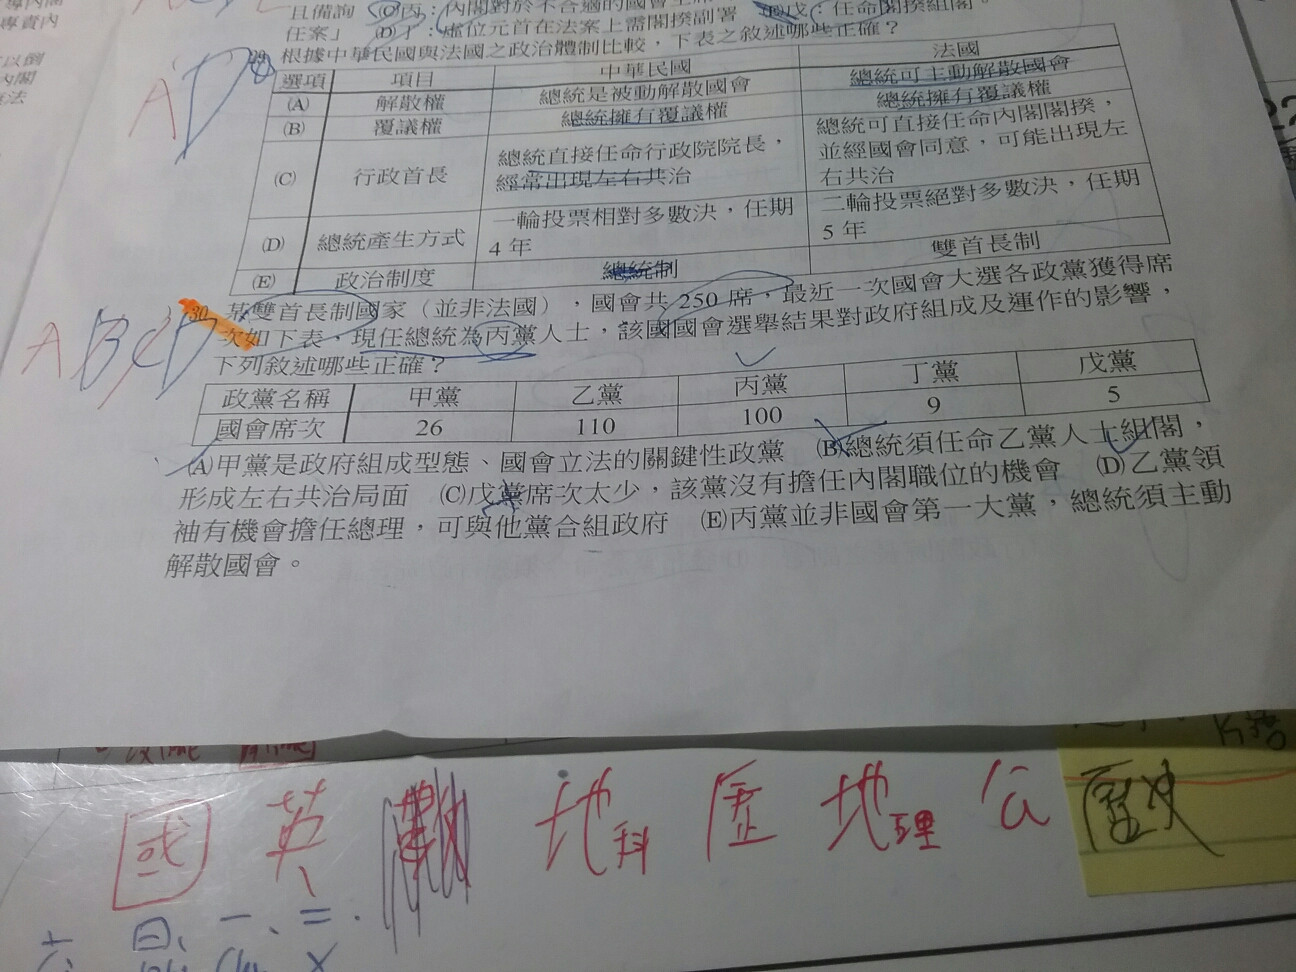 且備詢 (C)丙：內閣對於不合適的國會主席
任案」 (D)丁：虛位元首在法案上需閣揆副署 (E)戊：任命閣揆組閣。
29 根據中華民國與法國之政治體制比較，下表之敘述哪些正確？
選項 項目 中華民國 法國
(A) 解散權 總統是被動解散國會 總統可主動解散國會
(B) 覆議權 總統擁有覆議權 總統擁有覆議權
(C) 行政首長 總統直接任命行政院院長，經常出現左右共治 總統可直接任命內閣閣揆，並經國會同意，可能出現左右共治
(D) 總統產生方式 一輪投票相對多數決，任期4年 二輪投票絕對多數決，任期5年
(E) 政治制度 總統制 雙首長制
AD
30 某雙首長制國家（並非法國），國會共250席，最近一次國會大選各政黨獲得席
次如下表，現任總統為丙黨人士，該國國會選舉結果對政府組成及運作的影響，
下列敘述哪些正確？
政黨名稱 甲黨 乙黨 丙黨 丁黨 戊黨
國會席次 26 110 100 9 5
(A)甲黨是政府組成型態、國會立法的關鍵性政黨 (B)總統須任命乙黨人士組閣，
形成左右共治局面 (C)戊黨席次太少，該黨沒有擔任內閣職位的機會 (D)乙黨領
袖有機會擔任總理，可與他黨合組政府 (E)丙黨並非國會第一大黨，總統須主動
解散國會。
ABCD
國 英 數 地科 歷 地理 公